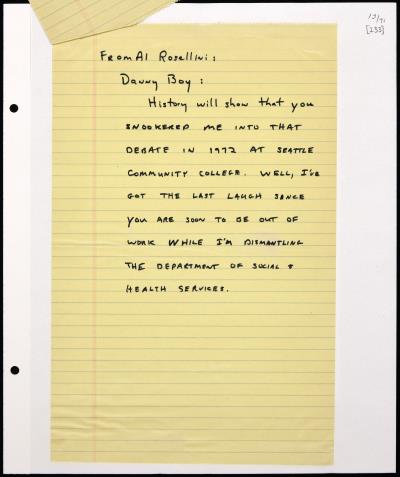 13/71
[233]
From Al Rosellini:
Danny Boy:
History will show that you
SNOOKERED ME INTO THAT
DEBATE IN 1972 AT SEATTLE
COMMUNITY COLLEGE. WELL, I'VE
GOT THE LAST LAUGH SANCE
YOU ARE SOON TO BE OUT OF
WORK WHILE I'M DISMANTLING
THE DEPARTMENT OF SOCIAL &
HEALTH SERVICES.